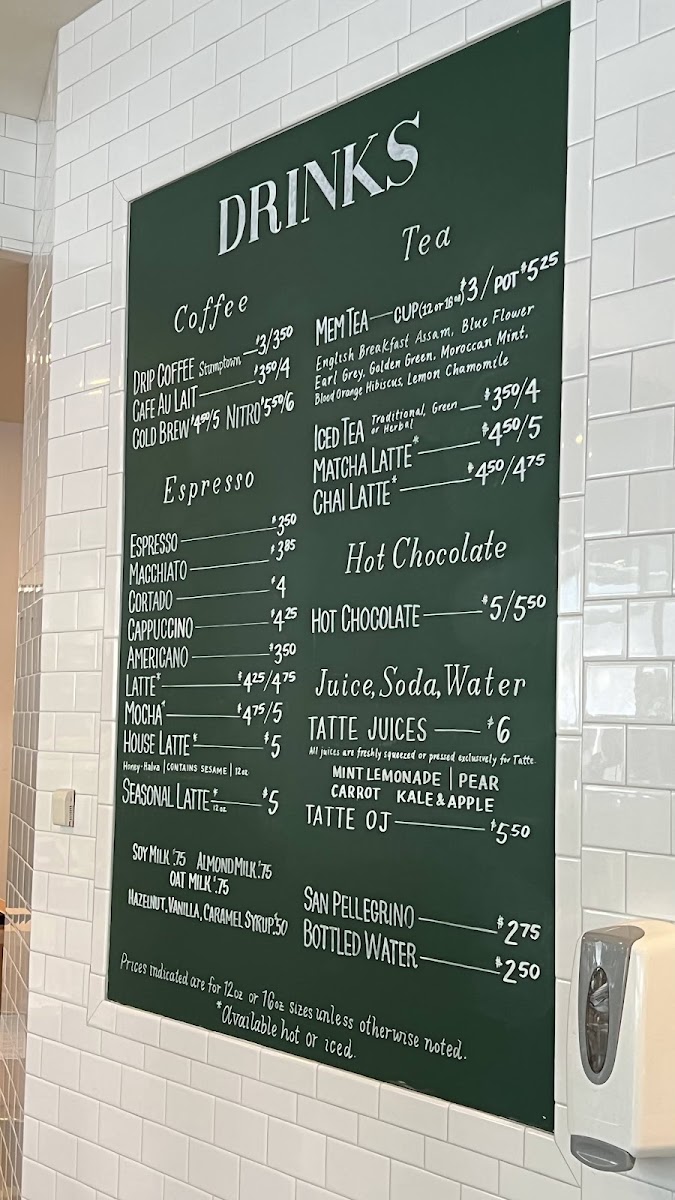 DRINKS
Coffee
DRIP COFFEE Stumptown — $3/3.50
CAFE AU LAIT — $3.50/4
COLD BREW $4.50/5 NITRO $5.50/6
Espresso
ESPRESSO — $3.50
MACCHIATO — $3.85
CORTADO — $4
CAPPUCCINO — $4.25
AMERICANO — $3.50
LATTE* — $4.25/4.75
MOCHA* — $4.75/5
HOUSE LATTE* — $5
Honey-Halva | CONTAINS SESAME | 12oz
SEASONAL LATTE* 12oz — $5
SOY MILK $.75 ALMOND MILK $.75
OAT MILK $.75
HAZELNUT, VANILLA, CARAMEL SYRUP $.50
Tea
MEM TEA — CUP (12 OR 16oz) $3 / POT $5.25
English Breakfast Assam, Blue Flower
Earl Grey, Golden Green, Moroccan Mint,
Blood Orange Hibiscus, Lemon Chamomile
ICED TEA Traditional, Green or Herbal — $3.50/4
MATCHA LATTE* — $4.50/5
CHAI LATTE* — $4.50/4.75
Hot Chocolate
HOT CHOCOLATE — $5/5.50
Juice, Soda, Water
TATTE JUICES — $6
All juices are freshly squeezed or pressed exclusively for Tatte.
MINT LEMONADE | PEAR
CARROT KALE & APPLE
TATTE OJ — $5.50
SAN PELLEGRINO — $2.75
BOTTLED WATER — $2.50
Prices indicated are for 12oz or 16oz sizes unless otherwise noted.
*Available hot or iced.